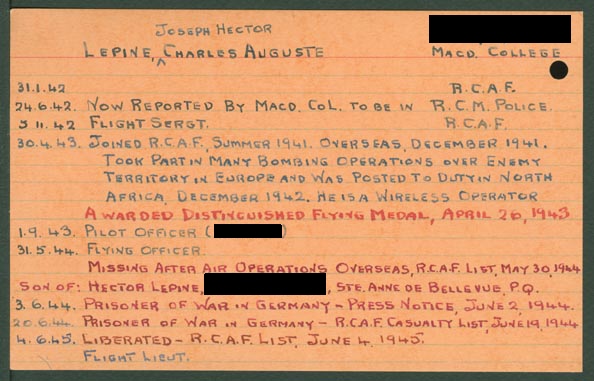 JOSEPH HECTOR
LEPINE, ^ CHARLES AUGUSTE
MACD. COLLEGE
31.1.42 R.C.A.F.
24.6.42. NOW REPORTED BY MACD. COL. TO BE IN R.C.M. POLICE.
3 11. 42 FLIGHT SERGT. R.C.A.F.
30.4.43. JOINED R.C.A.F., SUMMER 1941. OVERSEAS, DECEMBER 1941.
TOOK PART IN MANY BOMBING OPERATIONS OVER ENEMY
TERRITORY IN EUROPE AND WAS POSTED TO DUTY IN NORTH
AFRICA, DECEMBER 1942. HE IS A WIRELESS OPERATOR
AWARDED DISTINGUISHED FLYING MEDAL, APRIL 26, 1943
1.9.43. PILOT OFFICER ( )
31.5.44. FLYING OFFICER.
MISSING AFTER AIR OPERATIONS OVERSEAS, R.C.A.F. LIST, MAY 30, 1944
SON OF: HECTOR LEPINE, , STE. ANNE DE BELLEVUE, P.Q.
3.6.44. PRISONER OF WAR IN GERMANY - PRESS NOTICE, JUNE 2, 1944.
20.6.44. PRISONER OF WAR IN GERMANY - R.C.A.F. CASUALTY LIST, JUNE 19, 1944
4.6.45. LIBERATED - R.C.A.F. LIST, JUNE 4, 1945.
FLIGHT LIEUT.